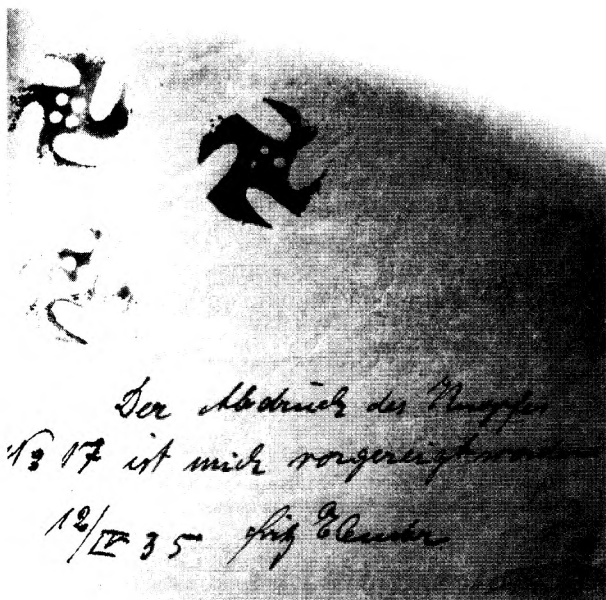 Der Abdruck des Knopfes
No 17 ist mich vorgezeigt worden
12/IV 35 Fritz